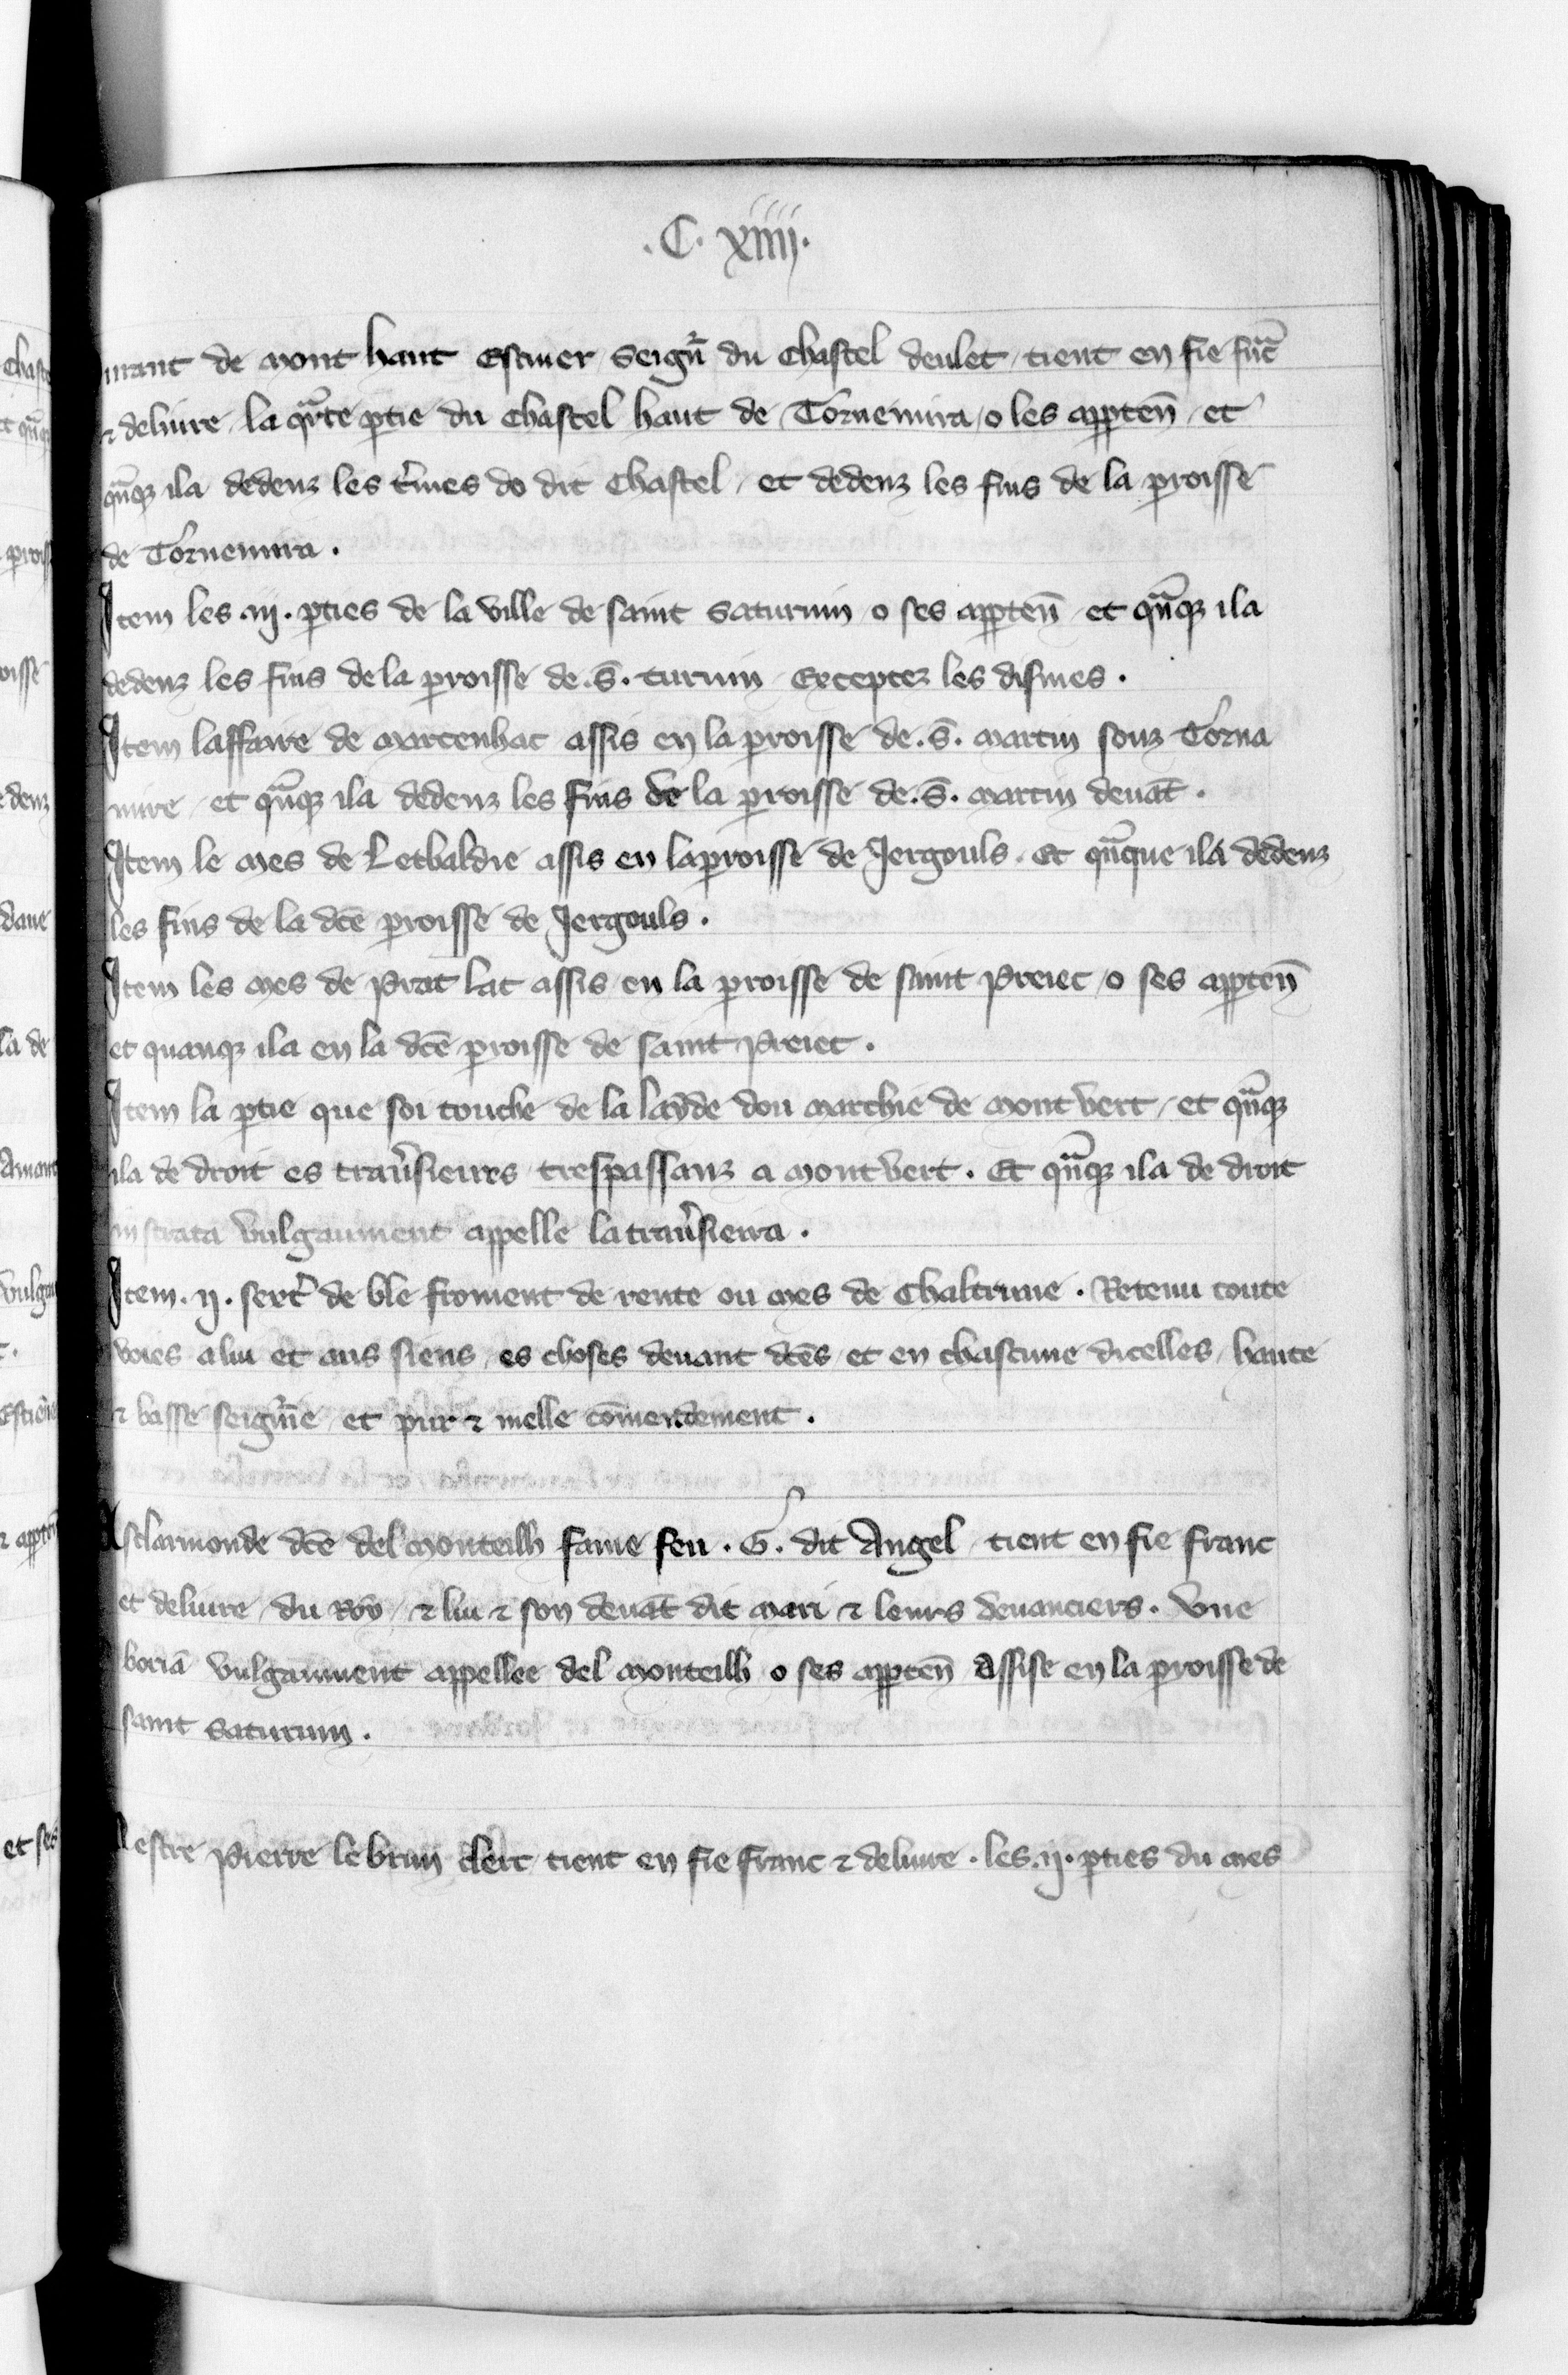 .C. xiiij.
murant de mont haut Escuier seignr̃ du Chastel deulet tient en fie frãc
⁊ deliure la qarte ptie du Chastel haut de Tornemira o les apptenñ et
qãnqz ila dedenz les t̾mes do dit Chastel et dedenz les fins de la proisse
de Tornemira.
Item les iij. pties de la ville de saint Saturnin o ses apptenñ et qãnqz ila
dedenz les fins de la proisse de .S̃. turnin Exceptez les dismes.
Item laffaire de Martenhac assis en la proisse de .S̃. Martin souz Torna
mire et qãnqz ila dedenz les fins de la proisse de .S̃. Martin deuãt.
Item le Mes de Letbaldie assis en la proisse de Jergouls. Et qãnque ila dedenz
les fins de la dc̃e proisse de Jergouls.
Item les Mes de Prat lat assis en la proisse de saint Preiec o ses apptenñ
et quanqz ila en la dc̃e proisse de saint Preiec.
Item la ptie que soi touche de la layde dou Marchie de Mont vert et qãnqz
ila de droit es tranũsieurs trespassanz a Mont vert. Et qãnqz ila de droit
in strata vulgaument appelle la tranũsieira.
Item .ij. sert̃ de ble froment de rente ou Mes de Chaltrune. Retenu toute
voies a lui et aus siens es choses deuant dc̃es et en chascune dicelles haute
⁊ basse seignr̃ie et pur ⁊ melle cõmendement.
Asclarmonde dc̃e del Monteilh fame feu .G. dit Angel tient en fie franc
et deliure du Roy ⁊ lui ⁊ son deuãt dit mari ⁊ leurs deuanciers. Vne
boriã vulgaument appellee del Monteilh o ses apptenñ assise en la proisse de
saint Saturnin.
Mestre Pierre le brun clerc tient en fie franc ⁊ deliure. les .ij. pties du Mes